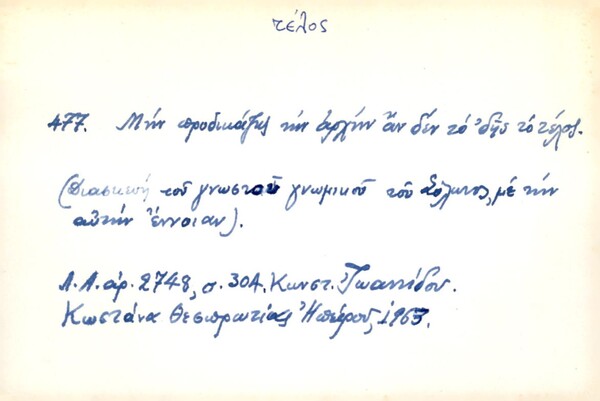 τέλος
477. Μήν προδικάζῃς τήν ἀρχήν ἄν δέν τό ἰδῇς τό τέλος.
(Διασκευή τοῦ γνωστοῦ γνωμικοῦ τοῦ Σόλωνος, μέ τήν
αὐτήν ἔννοιαν).
Λ.Α. ἀρ. 2748, σ. 304. Κωνστ. Ἰωαννίδου.
Κωστάνα Θεσπρωτίας Ἠπείρου, 1963.